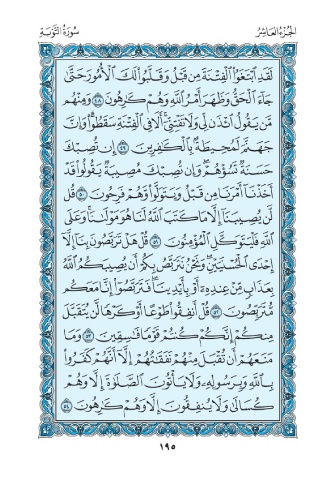 الجزء العاشر
سورة التوبة
لَقَدِ ٱبْتَغَوُا۟ ٱلْفِتْنَةَ مِن قَبْلُ وَقَلَّبُوا۟ لَكَ ٱلْأُمُورَ حَتَّىٰ
جَآءَ ٱلْحَقُّ وَظَهَرَ أَمْرُ ٱللَّهِ وَهُمْ كَـٰرِهُونَ ٤٨ وَمِنْهُم
مَّن يَقُولُ ٱئْذَن لِّى وَلَا تَفْتِنِّىٓ ۚ أَلَا فِى ٱلْفِتْنَةِ سَقَطُوا۟ ۗ وَإِنَّ
جَهَنَّمَ لَمُحِيطَةٌۢ بِٱلْكَـٰفِرِينَ ٤٩ إِن تُصِبْكَ
حَسَنَةٌ تَسُؤْهُمْ ۖ وَإِن تُصِبْكَ مُصِيبَةٌ يَقُولُوا۟ قَدْ
أَخَذْنَآ أَمْرَنَا مِن قَبْلُ وَيَتَوَلَّوا۟ وَّهُمْ فَرِحُونَ ٥٠ قُل
لَّن يُصِيبَنَآ إِلَّا مَا كَتَبَ ٱللَّهُ لَنَا هُوَ مَوْلَىٰنَا ۚ وَعَلَى
ٱللَّهِ فَلْيَتَوَكَّلِ ٱلْمُؤْمِنُونَ ٥١ قُلْ هَلْ تَرَبَّصُونَ بِنَآ إِلَّآ
إِحْدَى ٱلْحُسْنَيَيْنِ ۖ وَنَحْنُ نَتَرَبَّصُ بِكُمْ أَن يُصِيبَكُمُ ٱللَّهُ
بِعَذَابٍ مِّنْ عِندِهِۦٓ أَوْ بِأَيْدِينَا ۖ فَتَرَبَّصُوٓا۟ إِنَّا مَعَكُم
مُّتَرَبِّصُونَ ٥٢ قُلْ أَنفِقُوا۟ طَوْعًا أَوْ كَرْهًا لَّن يُتَقَبَّلَ
مِنكُمْ ۖ إِنَّكُمْ كُنتُمْ قَوْمًا فَـٰسِقِينَ ٥٣ وَمَا
مَنَعَهُمْ أَن تُقْبَلَ مِنْهُمْ نَفَقَـٰتُهُمْ إِلَّآ أَنَّهُمْ كَفَرُوا۟
بِٱللَّهِ وَبِرَسُولِهِۦ وَلَا يَأْتُونَ ٱلصَّلَوٰةَ إِلَّا وَهُمْ
كُسَالَىٰ وَلَا يُنفِقُونَ إِلَّا وَهُمْ كَـٰرِهُونَ ٥٤
١٩٥